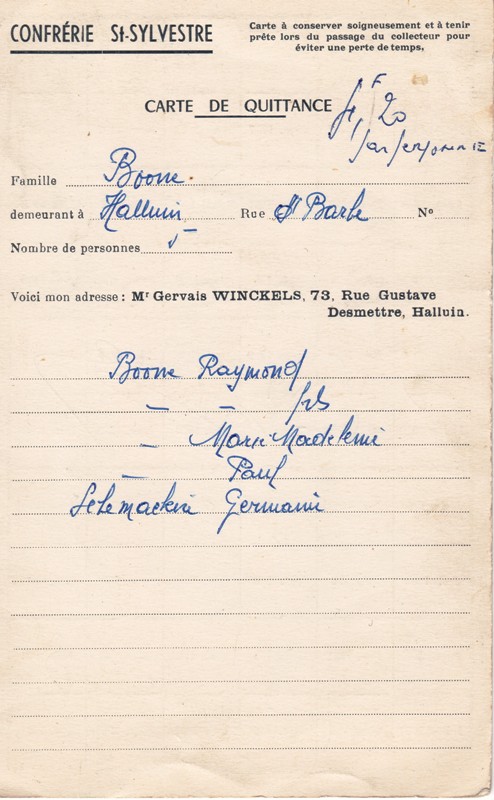 CONFRÉRIE St-SYLVESTRE
Carte à conserver soigneusement et à tenir
prête lors du passage du collecteur pour
éviter une perte de temps,
CARTE DE QUITTANCE
F
4,20
par personne
Famille Boone
demeurant à Halluin Rue St Barbe No
Nombre de personnes 5
Voici mon adresse : Mr Gervais WINCKELS, 73, Rue Gustave
Desmettre, Halluin.
Boone Raymond
— — fils
— Marie Madeleine
— Paul
Germaine